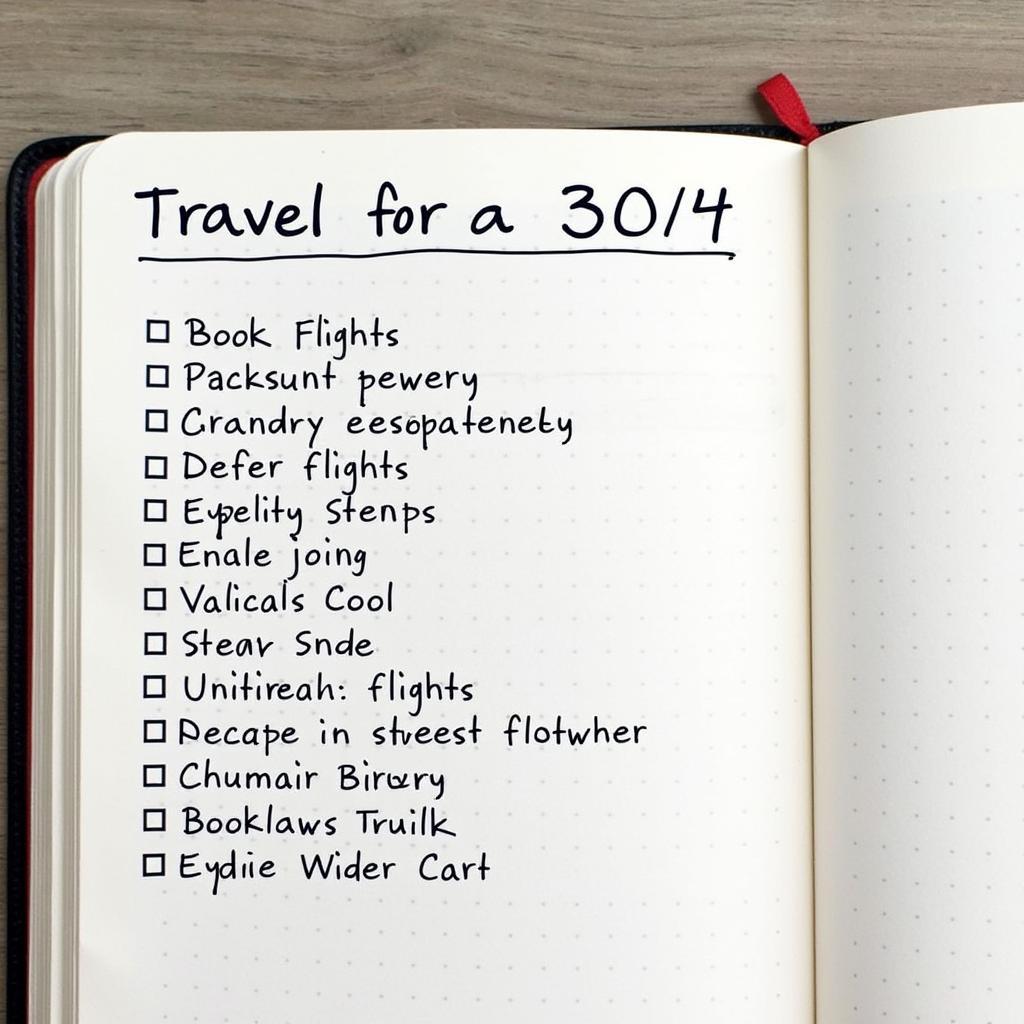 Travel for a 30/4
Book Flights
Packsunt pewery
Crandry eesopatenety
Defer flights
Eypelity Stenps
Enale joing
Valicals Cool
Stear Snde
Unitireah: flights
Decape in stveest flotwher
Chumair Birury
Booklaws Truilk
Eydiie Wider Cart